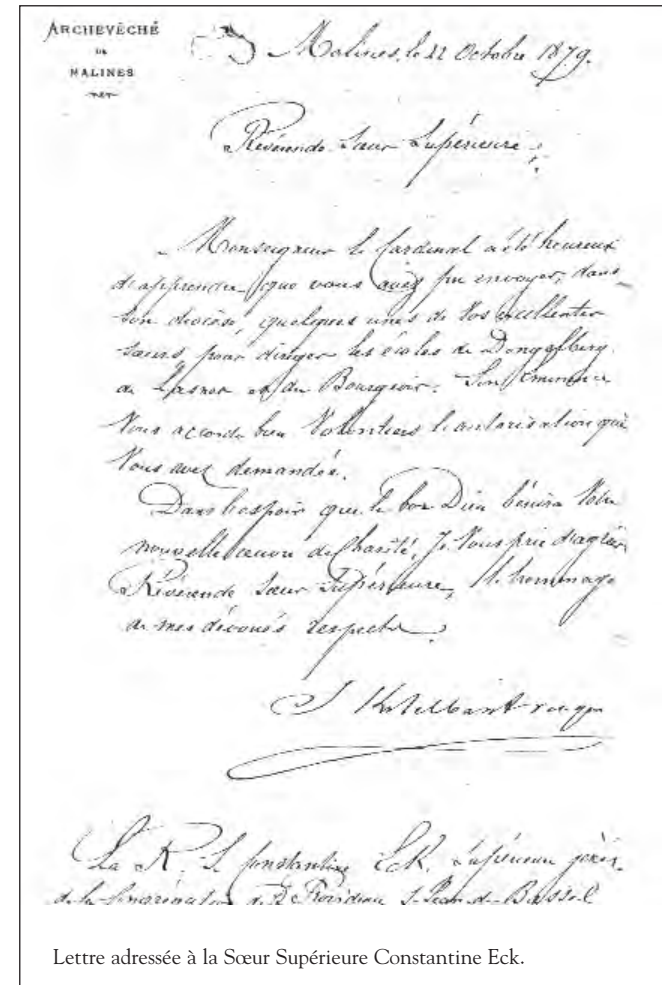 ARCHEVÊCHÉ
DE
MALINES
Malines, le 22 Octobre 1879.
Révérende Sœur Supérieure,
Monseigneur le Cardinal a été heureux
d'apprendre que vous avez pu envoyer, dans
son diocèse, quelques unes de vos excellentes
sœurs pour diriger les écoles de Dongelberg
de Lasne et du Bourgeois. Son Eminence
Vous accorde bien Volontiers l'autorisation que
Vous avez demandée.
Dans l'espoir que le bon Dieu bénira Votre
nouvelle œuvre de Charité, Je Vous prie d'agréer
Révérende Sœur Supérieure, l'hommage
de mes dévoués respects.
La R. S. Constantine Eck, Supérieure génér.
de la Congrégation de la Providence S. Jean-de-Bassel
Lettre adressée à la Sœur Supérieure Constantine Eck.